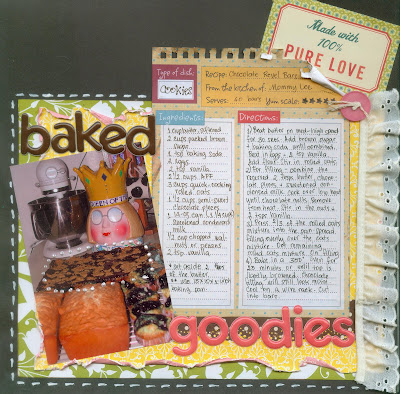 Made with
100%
PURE LOVE
Type of dish:
cookies
Recipe: Chocolate Revel Bars
From the kitchen of: Mommy Lee
Serves: 20 bars Yum scale:
baked
Ingredients:
1 cup butter, softened
2 cups packed brown
sugar
1 tsp baking soda
2 eggs
2 tsp vanilla
2 1/2 cups APF
3 cups quick-cooking
rolled oats
1 1/2 cups semi-sweet
chocolate pieces
1 14-oz can (1 1/4 cups)
sweetened condensed
milk
1/2 cup chopped wal-
nuts or pecans
2 tsp vanilla
* set aside 2 tbps
of the butter.
** use 15x10x1-inch
baking pan.
Directions:
1) Beat butter on med-high speed
for 30 secs. Add brown sugar
+ baking soda. Beat until combined.
Beat in eggs + 2 tsp vanilla.
Add flour. Stir in rolled oats.
2) For filling: combine the
reserved 2 tbsps butter, choco-
late pieces + sweetened con-
densed milk. Cook over low heat
until chocolate melts. Remove
from heat. Stir in the nuts +
2 tsps vanilla.
3) Press 2/3 of the rolled oats
mixture into the pan. Spread
filling evenly over the oats
mixture. Dot remaining
rolled oats mixture on filling
4) Bake in a 350° oven for
25 minutes or until top is
lightly browned. Chocolate
filling will still look moist.
Cool on a wire rack. Cut
into bars.
goodies